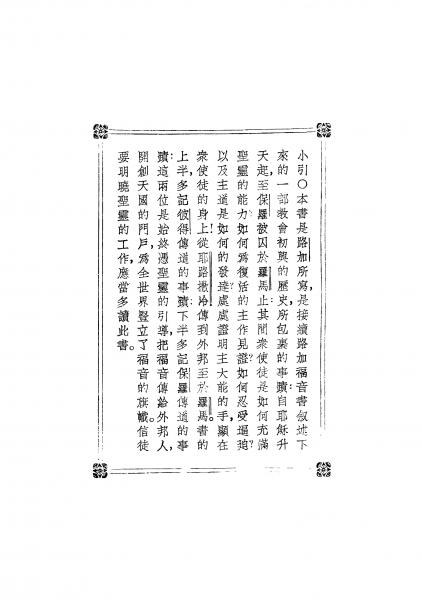 小引○本書是路加所寫,是接續路加福音書叙述下
來的一部教會初興的歷史,所包裹的事蹟:自耶穌升
天起,至保羅被囚於羅馬止;其間衆使徒是如何充滿
聖靈的能力?如何爲復活的主作見證?如何忍受逼廹?
以及主道是如何的發達?處處證明主大能的手,顯在
衆使徒的身上!從耶路撒冷傳到外邦至於羅馬。書的
上半,多記彼得傳道的事蹟;下半多記保羅傳道的事
蹟:這兩位是始終憑聖靈的引導,把福音傳給外邦人,
開創天國的門戶,爲全世界豎立了福音的旗幟。信徒
要明曉聖靈的工作,應當多讀此書。